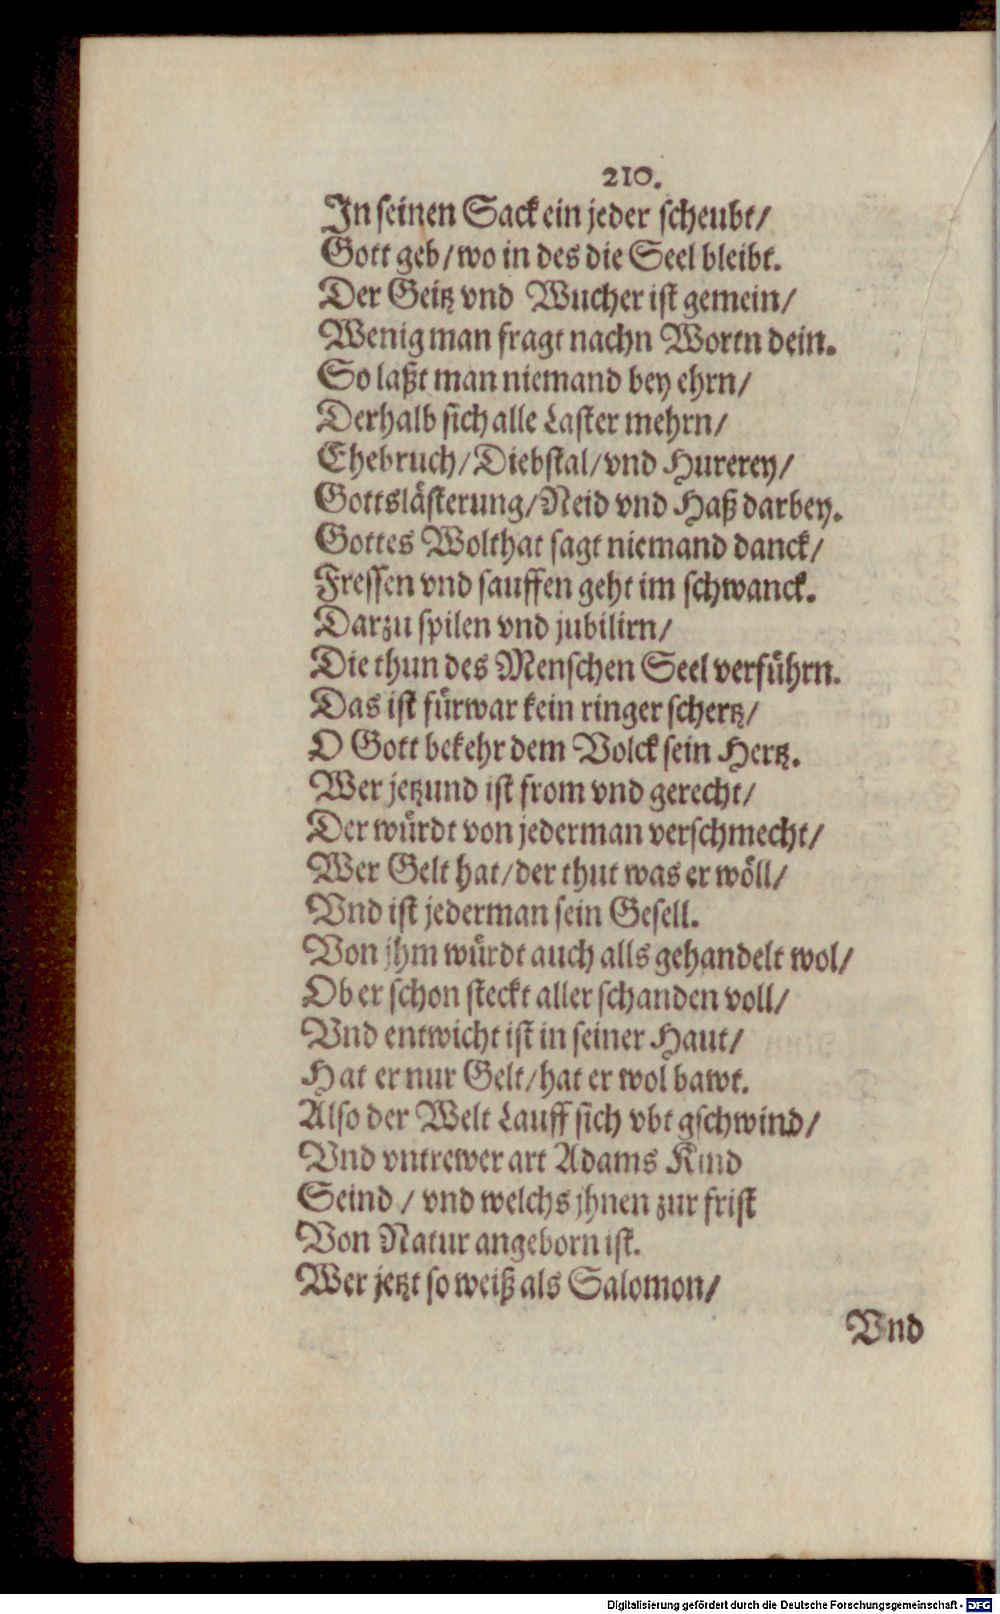 210.
In seinen Sack ein jeder scheubt/
Gott geb/ wo in des die Seel bleibt.
Der Geitz vnd Wucher ist gemein/
Wenig man fragt nachn Wortn dein.
So laßt man niemand bey ehrn/
Derhalb sich alle Laster mehrn/
Ehebruch/ Diebstal/ vnd Hurerey/
Gottslästerung/ Neid vnd Haß darbey.
Gottes Wolthat sagt niemand danck/
Fressen vnd sauffen geht im schwanck.
Darzu spilen vnd jubilirn/
Die thun des Menschen Seel verführn.
Das ist fürwar kein ringer schertz/
O Gott bekehr dem Volck sein Hertz.
Wer jetzund ist from vnd gerecht/
Der würdt von jederman verschmecht/
Wer Gelt hat/ der thut was er wöll/
Vnd ist jederman sein Gesell.
Von jhm würdt auch alls gehandelt wol/
Ob er schon steckt aller schanden voll/
Vnd entwicht ist in seiner Haut/
Hat er nur Gelt/ hat er wol bawt.
Also der Welt Lauff sich vbt gschwind/
Vnd vntrewer art Adams Kind
Seind / vnd welchs jhnen zur frist
Von Natur angeborn ist.
Wer jetzt so weiß als Salomon/
Vnd
Digitalisierung gefördert durch die Deutsche Forschungsgemeinschaft - DFG